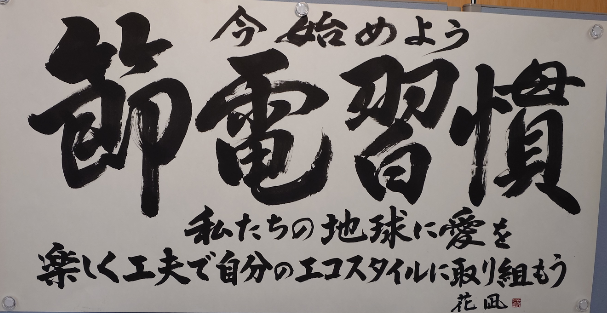 今始めよう
節電習慣
私たちの地球に愛を
楽しく工夫で自分のエコスタイルに取り組もう
花凪